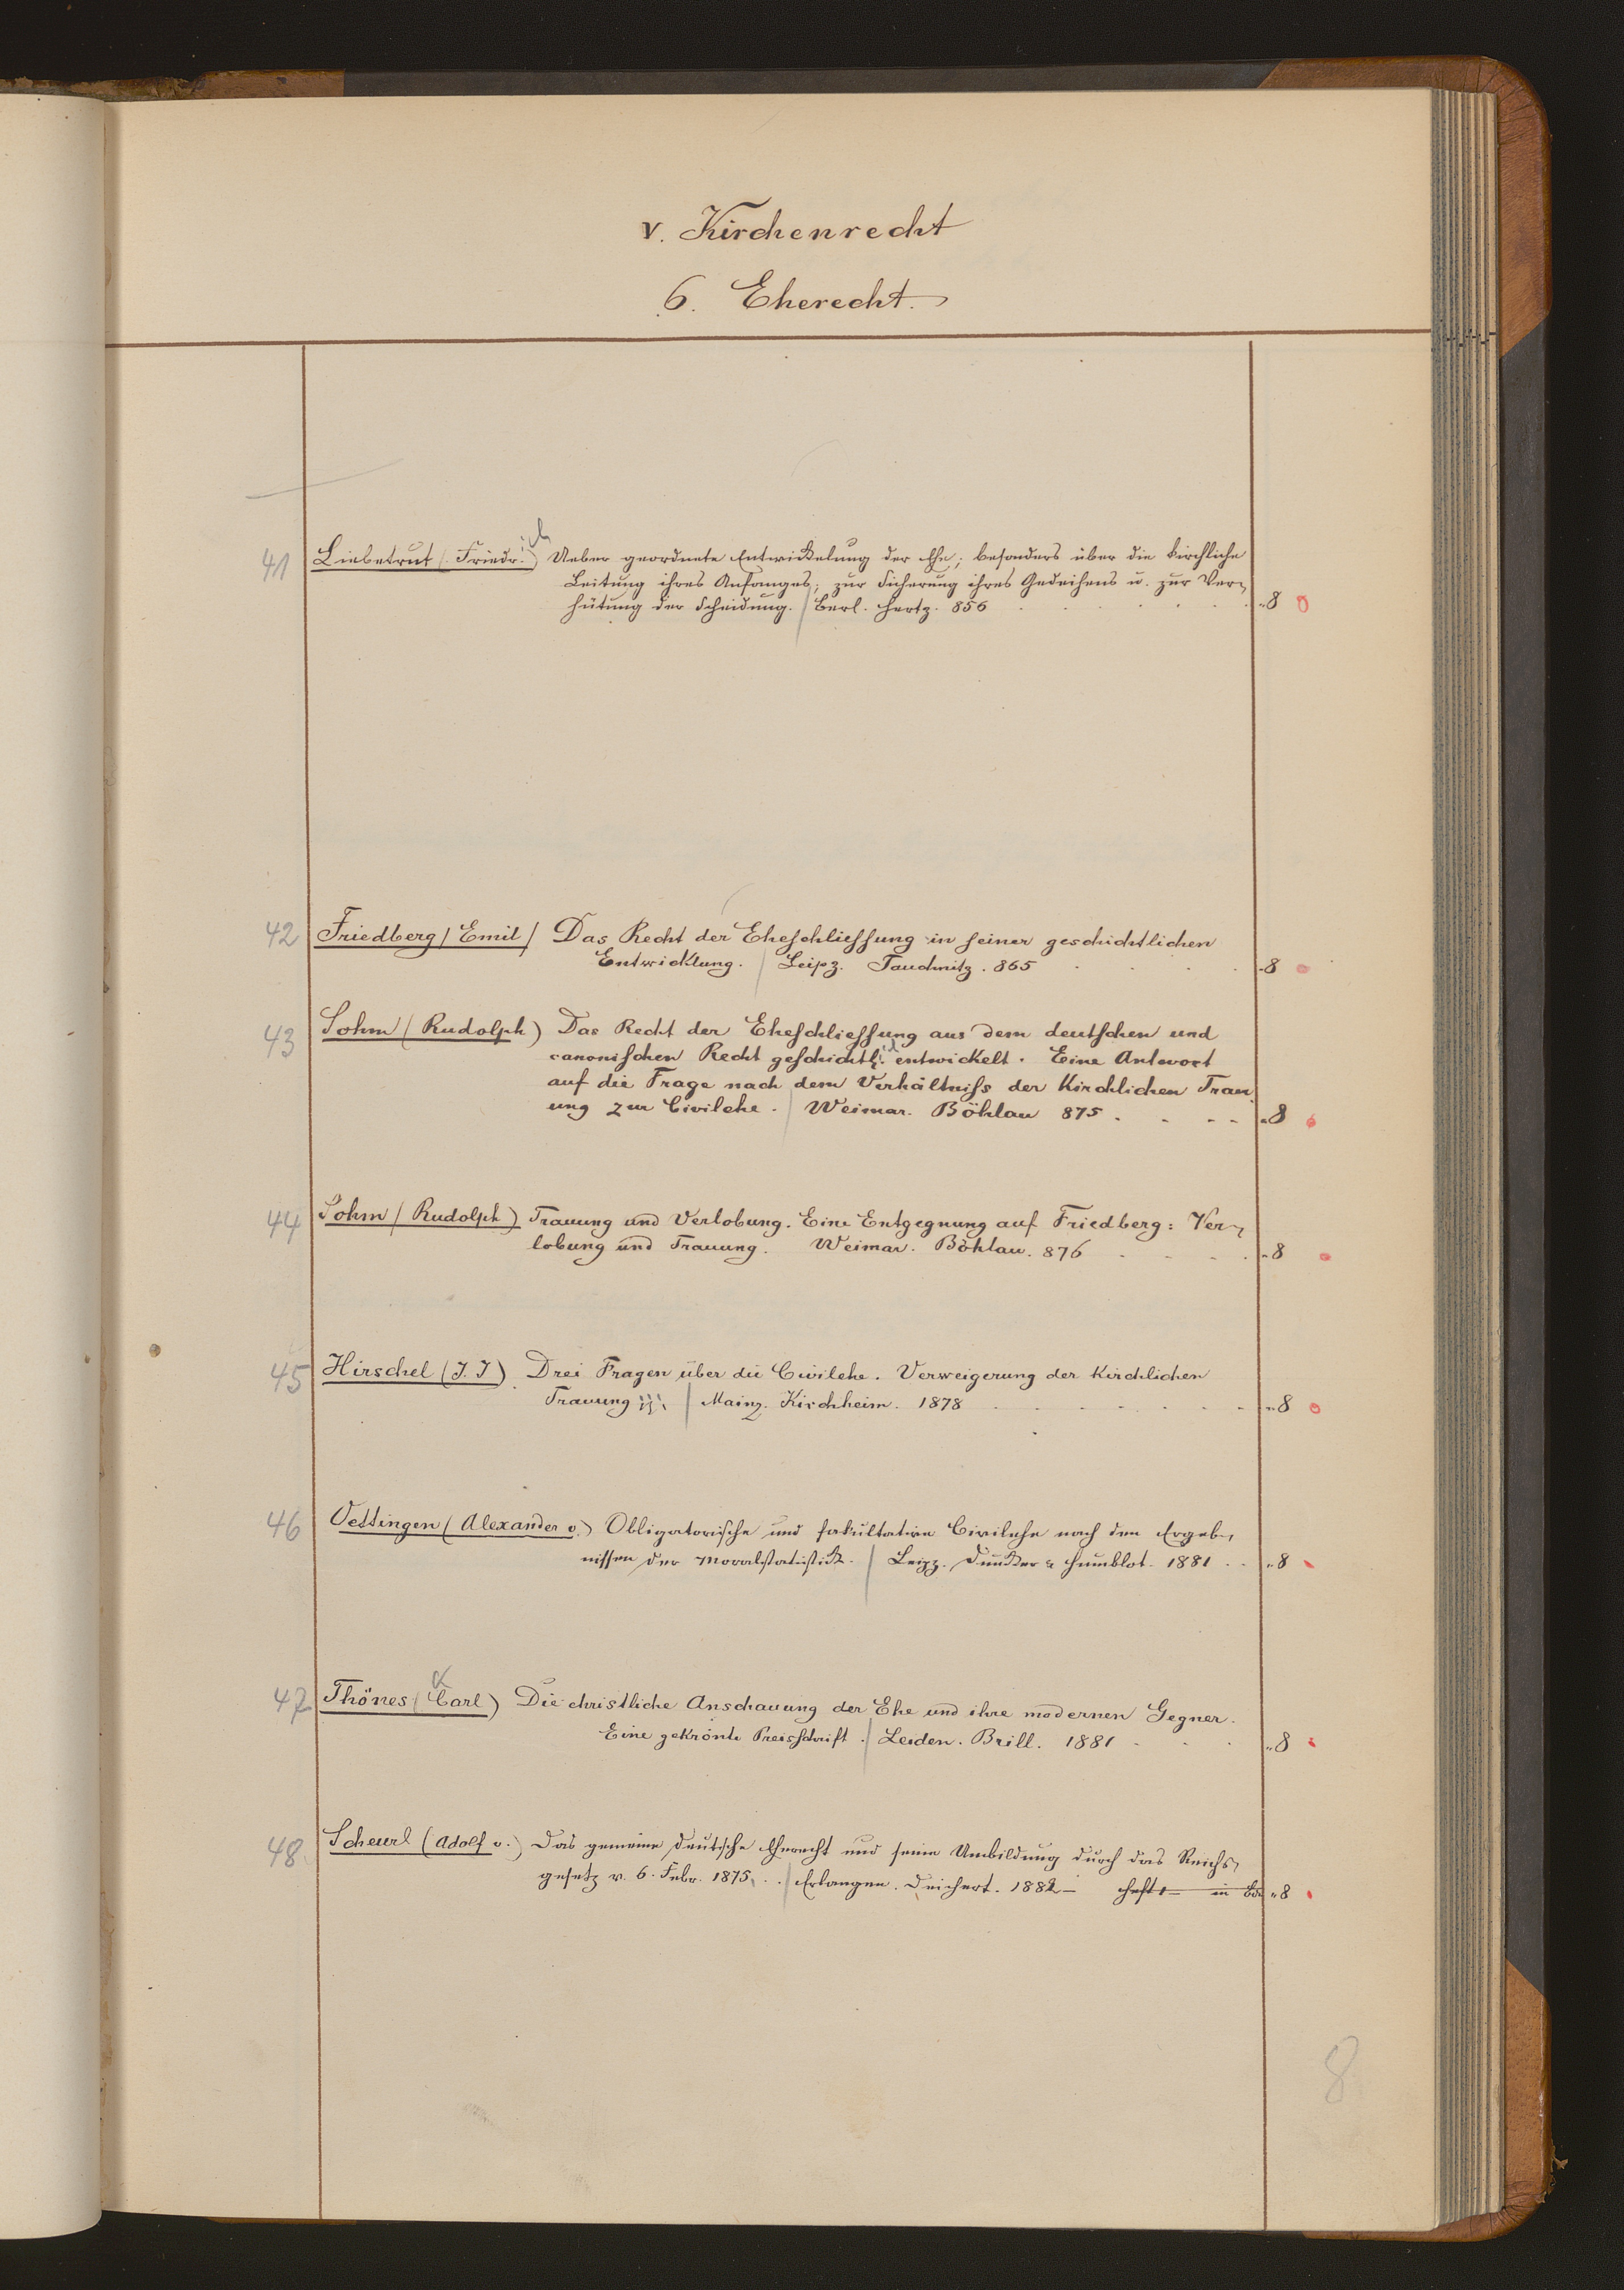 V. Kirchenrecht
6. Eherecht.
41 Liebetrut (Friedr.ich) Ueber geordnete Entwickelung der Ehe; besonders über die kirchliche
Leitung ihres Anfanges; zur Sicherung ihres Gedeihens u. zur Ver-
hütung der Scheidung. / Berl. Hertz. 856 . . . . . . "8
42 Friedberg / Emil / Das Recht der Eheschliessung in seiner geschichtlichen
Entwicklung. / Leipz. Tauchnitz. 865 . . . . "8
43 Sohm (Rudolph) Das Recht der Eheschliessung aus dem deutschen und
canonischen Recht geschichtl. entwickelt. Eine Antwort
auf die Frage nach dem Verhältniss der Kirchlichen Trau-
ung zur Civilehe. / Weimar. Böhlau 875 . . . . "8
44 Sohm (Rudolph) Trauung und Verlobung. Eine Entgegnung auf Friedberg: Ver-
lobung und Trauung. Weimar. Böhlau. 876 . . . . "8
45 Hirschel (J. J) Drei Fragen über die Civilehe. Verweigerung der Kirchlichen
Trauung / Mainz. Kirchheim. 1878 . . . . . . . "8
46 Oettingen (Alexander v.) Obligatorische und fakultative Civilehe nach den Ergeb-
nissen der Moralstatistik. / Leipz. Duncker & Humblot. 1881 . . "8
47 Thönes (Carl) Die christliche Anschauung der Ehe und ihre modernen Gegner.
Eine gekrönte Preisschrift. / Leiden. Brill. 1881 . . . "8
48 Scheurl (Adolf v.) Das gemeine deutsche Eherecht und seine Umbildung durch das Reichs-
gesetz v. 6. Febr. 1875. . . / Erlangen. Deichert. 1882 – Heft 1 – in "8
8